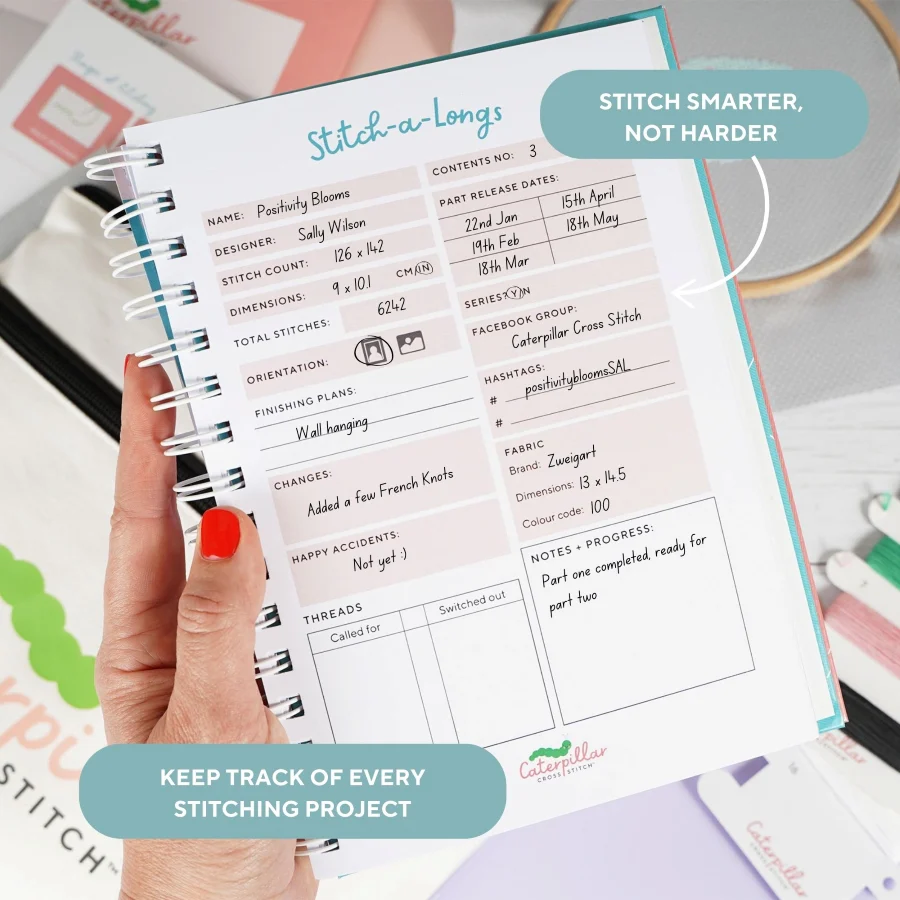 Caterpillar
STITCH SMARTER,
NOT HARDER
Stitch-a-Longs
NAME: Positivity Blooms
DESIGNER: Sally Wilson
STITCH COUNT: 126 x 142
DIMENSIONS: 9 x 10.1 CM/IN
TOTAL STITCHES: 6242
ORIENTATION:
FINISHING PLANS:
Wall hanging
CHANGES:
Added a few French Knots
HAPPY ACCIDENTS:
Not yet :)
THREADS
Called for
Switched out
CONTENTS NO: 3
PART RELEASE DATES:
22nd Jan 15th April
19th Feb 18th May
18th Mar
SERIES? Y/N
FACEBOOK GROUP:
Caterpillar Cross Stitch
HASHTAGS:
# positivitybloomsSAL
#
FABRIC
Brand: Zweigart
Dimensions: 13 x 14.5
Colour code: 100
NOTES + PROGRESS:
Part one completed, ready for
part two
Caterpillar
CROSS STITCH
KEEP TRACK OF EVERY
STITCHING PROJECT
STITCH™
Caterpillar
Caterpillar
CROSS STITCH
16